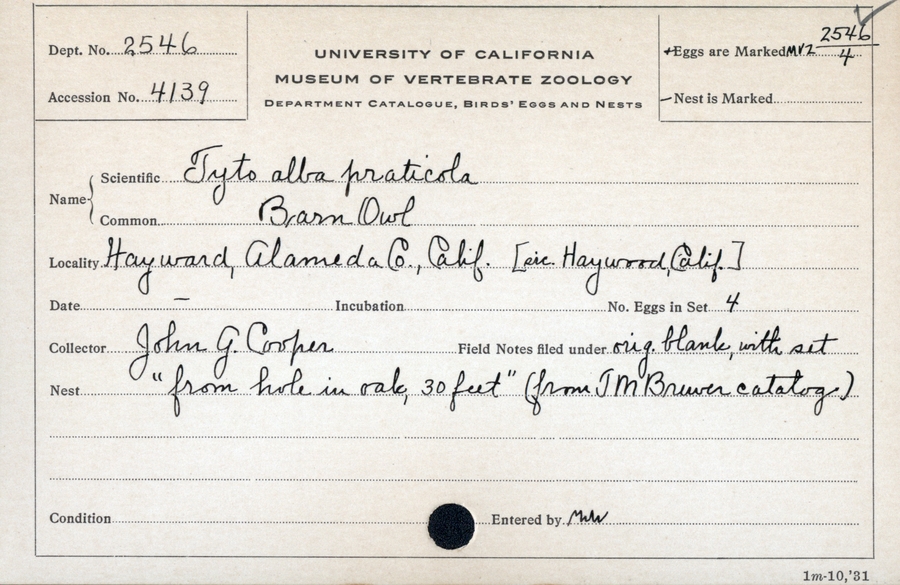 Dept. No. 2546
Accession No. 4139
UNIVERSITY OF CALIFORNIA
MUSEUM OF VERTEBRATE ZOOLOGY
DEPARTMENT CATALOGUE, BIRDS' EGGS AND NESTS
+Eggs are Marked MVZ 2546/4
—Nest is Marked
Name
Scientific Tyto alba praticola
Common Barn Owl
Locality Hayward, Alameda Co., Calif. [sic. Haywood, Calif.]
Date — Incubation No. Eggs in Set 4
Collector John G. Cooper Field Notes filed under orig. blank, with set
Nest "from hole in oak, 30 feet" (from TM Brewer catalog.)
Condition Entered by
1m-10,'31